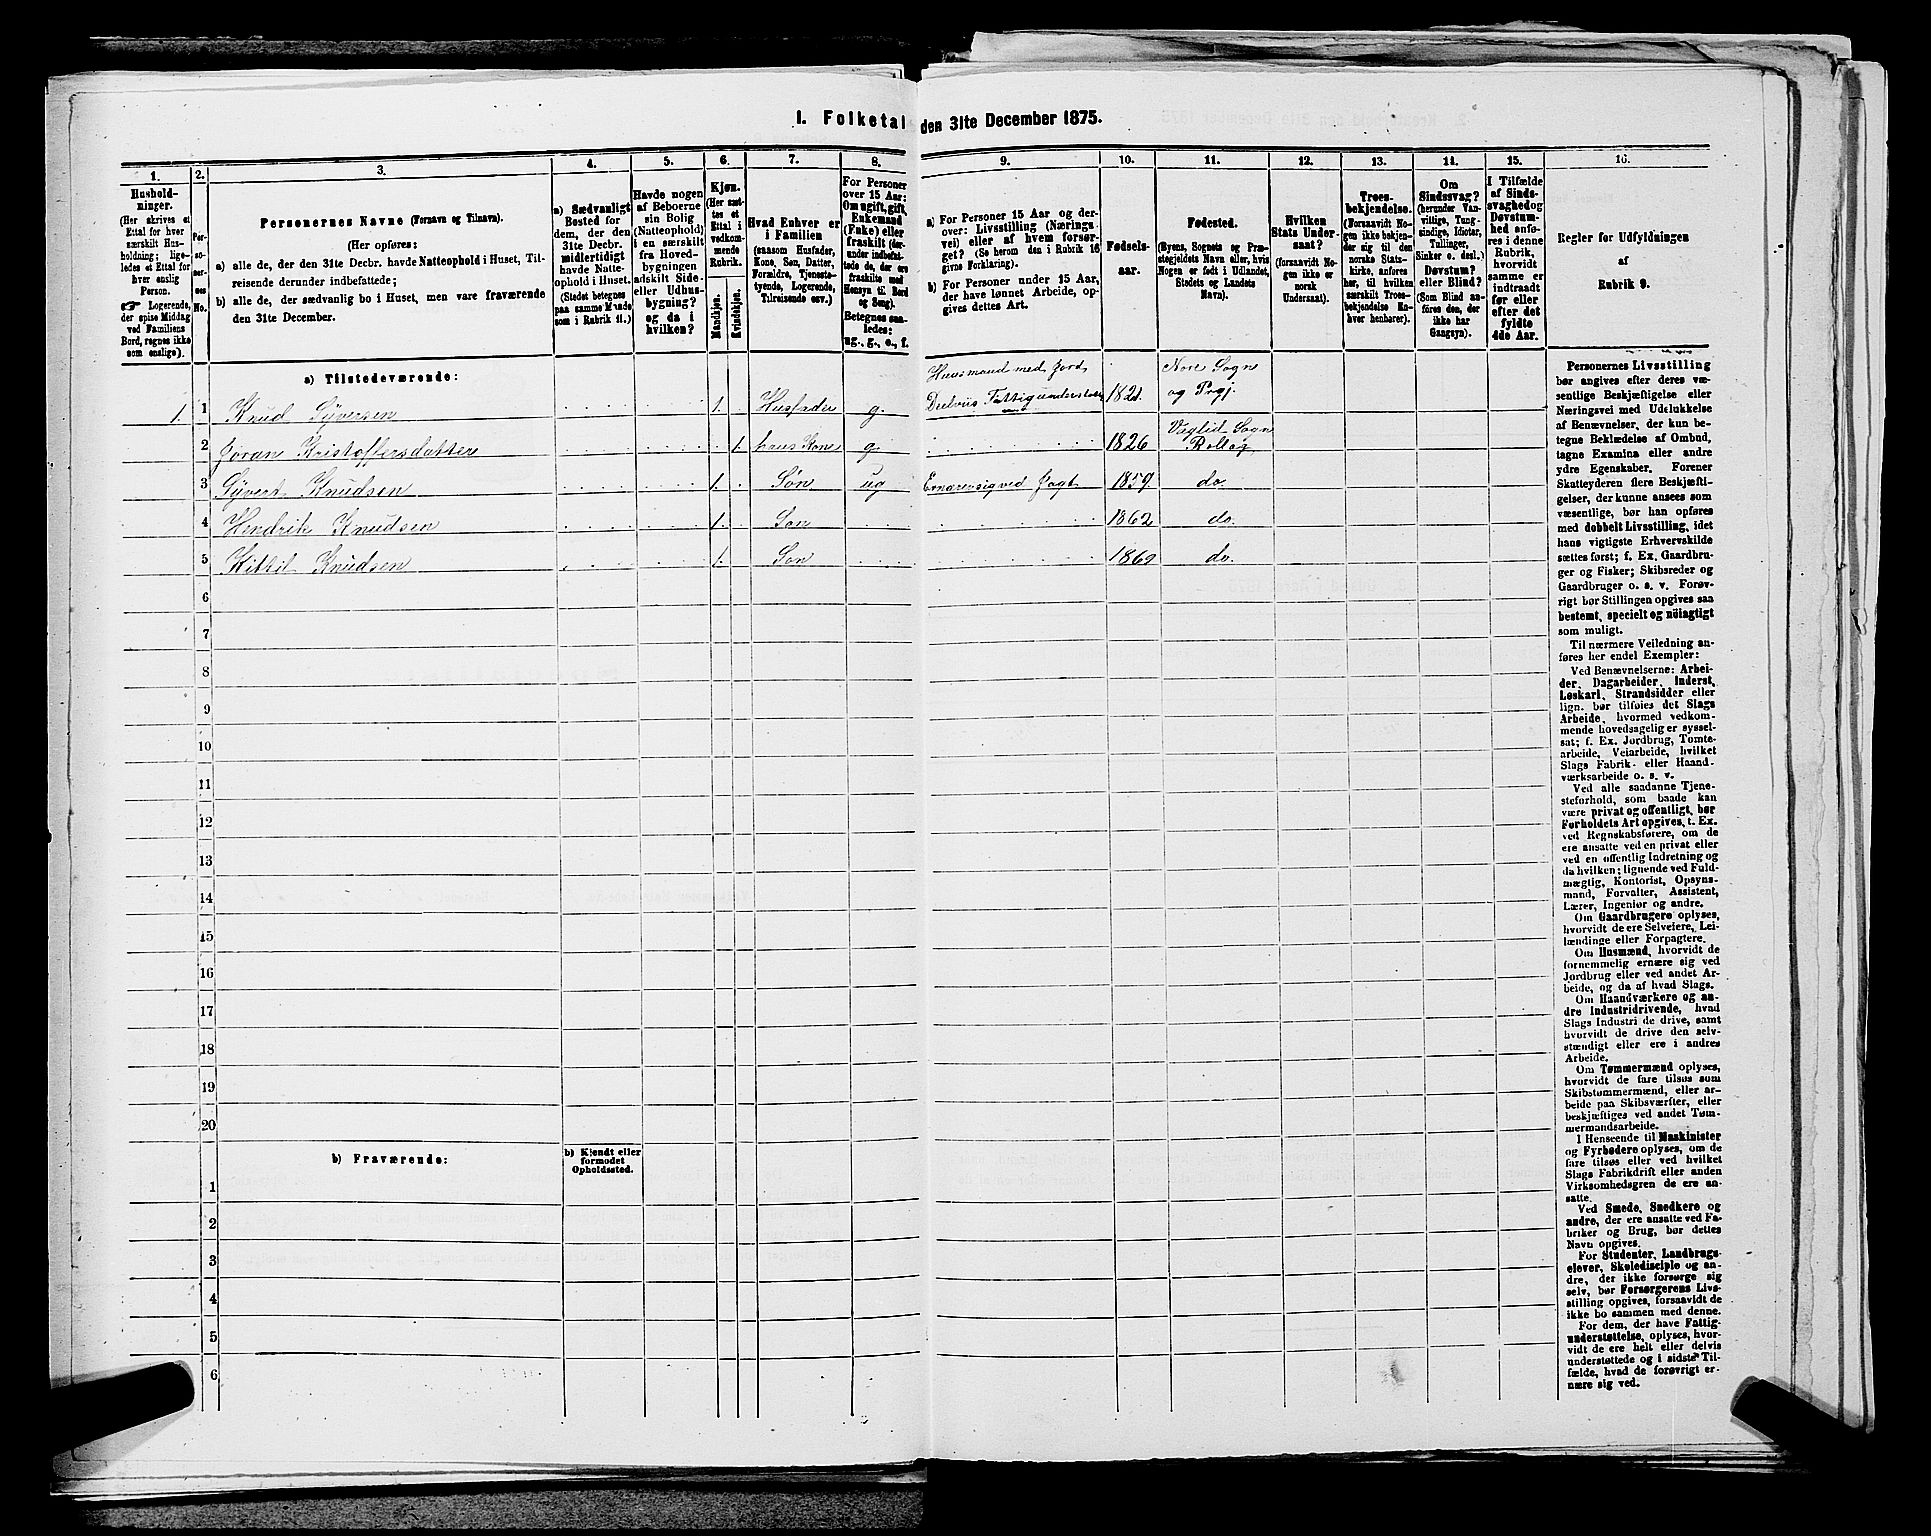 I. Folketal den 31te December 1875.
1.
Hushold-
ninger.
(Her skrives et
Ettal for hver
særskilt Hus-
holdning; lige-
ledes et Ettal for
hver enslig
Person.
☛ Logerende,
der spise Middag
ved Familiens
Bord, regnes ikke
som enslige).
2.
Per-
so-
ner-
nes
No.
3.
Personernes Navne (Fornavn og Tilnavn).
(Her opføres:
a) alle de, der den 31te Decbr. havde Natteophold i Huset, Til-
reisende derunder indbefattede;
b) alle de, der sædvanlig bo i Huset, men vare fraværende
den 31te December.
4.
a) Sædvanligt
Bosted for
dem, der den
31te Decbr.
midlertidigt
havde Natte-
ophold i Huset.
(Stedet betegnes
paa samme Maade
som i Rubrik 11.)
5.
Havde nogen
af Beboerne
sin Bolig
(Natteophold)
i en særskilt
fra Hoved-
bygningen
adskilt Side
eller Udhus-
bygning?
og da i
hvilken?
6.
Kjøn.
(Her sæt-
tes et
Ettal i
vedkom-
mende
Rubrik.
Mandkjøn.
Kvindekjøn.
7.
Hvad Enhver er
i Familien
(saasom Husfader,
Kone, Søn, Datter,
Forældre, Tjeneste-
tyende, Logerende,
Tilreisende osv.)
8.
For Personer
over 15 Aar:
Om ugift, gift,
Enkemand
(Enke) eller
fraskilt (der-
under indbefat-
tede de, der ere
fraskilte med
Hensyn til Bord
og Seng).
Betegnes saa-
ledes:
ug., g., e., f.
9.
a) For Personer 15 Aar og der-
over: Livsstilling (Nærings-
vei) eller af hvem forsør-
get? (Se herom den i Rubrik 16
givne Forklaring).
b) For Personer under 15 Aar,
der have lønnet Arbeide, op-
gives dettes Art.
10.
Fødsels-
aar.
11.
Fødested.
(Byens, Sognets og Præ-
stegjeldets Navn eller, hvis
Nogen er født i Udlandet,
Stedets og Landets
Navn).
12.
Hvilken
Stats Under-
saat?
(forsaavidt No-
gen ikke er
norsk
Undersaat).
13.
Troes-
bekjendelse.
(Forsaavidt No-
gen ikke bekjen-
der sig til den
norske Stats-
kirke, anføres
her, til hvilken
særskilt Troes-
bekjendelse En-
hver henhører).
14.
Om
Sindssvag?
(herunder Van-
vittige, Tung-
sindige, Idioter,
Tullinger,
Sinker o. desl.)
Døvstum?
eller Blind?
(Som Blind an-
føres den, der
ikke har
Gangsyn).
15.
I Tilfælde
af Sinds-
svaghed og
Døvstum-
hed anfø-
res i denne
Rubrik,
hvorvidt
samme er
indtraadt
før eller
efter det
fyldte
4de Aar.
16.
Regler for Udfyldningen
af
Rubrik 9.
a) Tilstedeværende:
Huusmand med Jord Nore Sogn
1. 1 Knud Syversen 1. Husfader g. Deelviis Fattigunderstøtt. 1821. og Prgj.
Væglid Sogn
2 Joran Kristoffersdatter 1. hans Kone g. 1826 Rollag
3 Syvert Knudsen 1. Søn ug Ernærer sig ved Jagt 1859. do.
4 Hendrik Knudsen 1. Søn 1862 do.
5 Kittil Knudsen 1. Søn 1869 do.
6
7
8
9
10
11
12
13
14
15
16
17
18
19
20
b) Fraværende:
b) Kjendt eller
formodet
Opholdssted.
1
2
3
4
5
6
Personernes Livsstilling
bør angives efter deres væ-
sentlige Beskjæftigelse eller
Næringsvei med Udelukkelse
af Benævnelser, der kun be-
tegne Beklædelse af Ombud,
tagne Examina eller andre
ydre Egenskaber. Forener
Skatteyderen flere Beskjæfti-
gelser, der kunne ansees som
væsentlige, bør han opføres
med dobbelt Livsstilling, idet
hans vigtigste Erhvervskilde
sættes først; f. Ex. Gaardbru-
ger og Fisker; Skibsreder og
Gaardbruger o. s. v. Forøv-
rigt bør Stillingen opgives saa
bestemt, specielt og nöiagtigt
som muligt.
Til nærmere Veiledning an-
føres her endel Exempler:
Ved Benævnelserne: Arbei-
der, Dagarbeider, Inderst,
Løskarl, Strandsidder eller
lign. bør tilføies det Slags
Arbeide, hvormed vedkom-
mende hovedsagelig er syssel-
sat; f. Ex. Jordbrug, Tomte-
arbeide, Veiarbeide, hvilket
Slags Fabrik- eller Haand-
værksarbeide o. s. v.
Ved alle saadanne Tjene-
steforhold, som baade kan
være privat og offentligt, bør
Forholdets Art opgives, t. Ex.
ved Regnskabsførere, om de
ere ansatte ved en privat eller
ved en offentlig Indretning og
da hvilken; lignende ved Fuld-
mægtig, Kontorist, Opsyns-
mand, Forvalter, Assistent,
Lærer, Ingeniør og andre.
Om Gaardbrugere oplyses,
hvorvidt de ere Selveiere, Lei-
lændinge eller Forpagtere.
Om Husmænd, hvorvidt de
fornemmelig ernære sig ved
Jordbrug eller ved andet Ar-
beide, og da af hvad Slags.
Om Haandværkere og an-
dre Industridrivende, hvad
Slags Industri de drive, samt
hvorvidt de drive den selv-
stændigt eller ere i andres
Arbeide.
Om Tømmermænd oplyses,
hvorvidt de fare tilsøs som
Skibstømmermænd, eller ar-
beide paa Skibsværfter, eller
beskjæftiges ved andet Tøm-
mermandsarbeide.
I Henseende til Maskinister
og Fyrbødere oplyses, om de
fare tilsøs eller ved hvilket
Slags Fabrikdrift eller anden
Virksomhedsgren de ere an-
satte.
Ved Smede, Snedkere og
andre, der ere ansatte ved Fa-
briker og Brug, bør dettes
Navn opgives.
For Studenter, Landbrugs-
elever, Skoledisciple og an-
dre, der ikke forsørge sig
selv, bør Forsørgerens Livs-
stilling opgives, forsaavidt de
ikke bo sammen med denne.
For dem, der have Fattig-
understøttelse, oplyses, hvor-
vidt de ere helt eller delvis
understøttede og i sidste Til-
fælde, hvad de forøvrigt er-
nære sig ved.